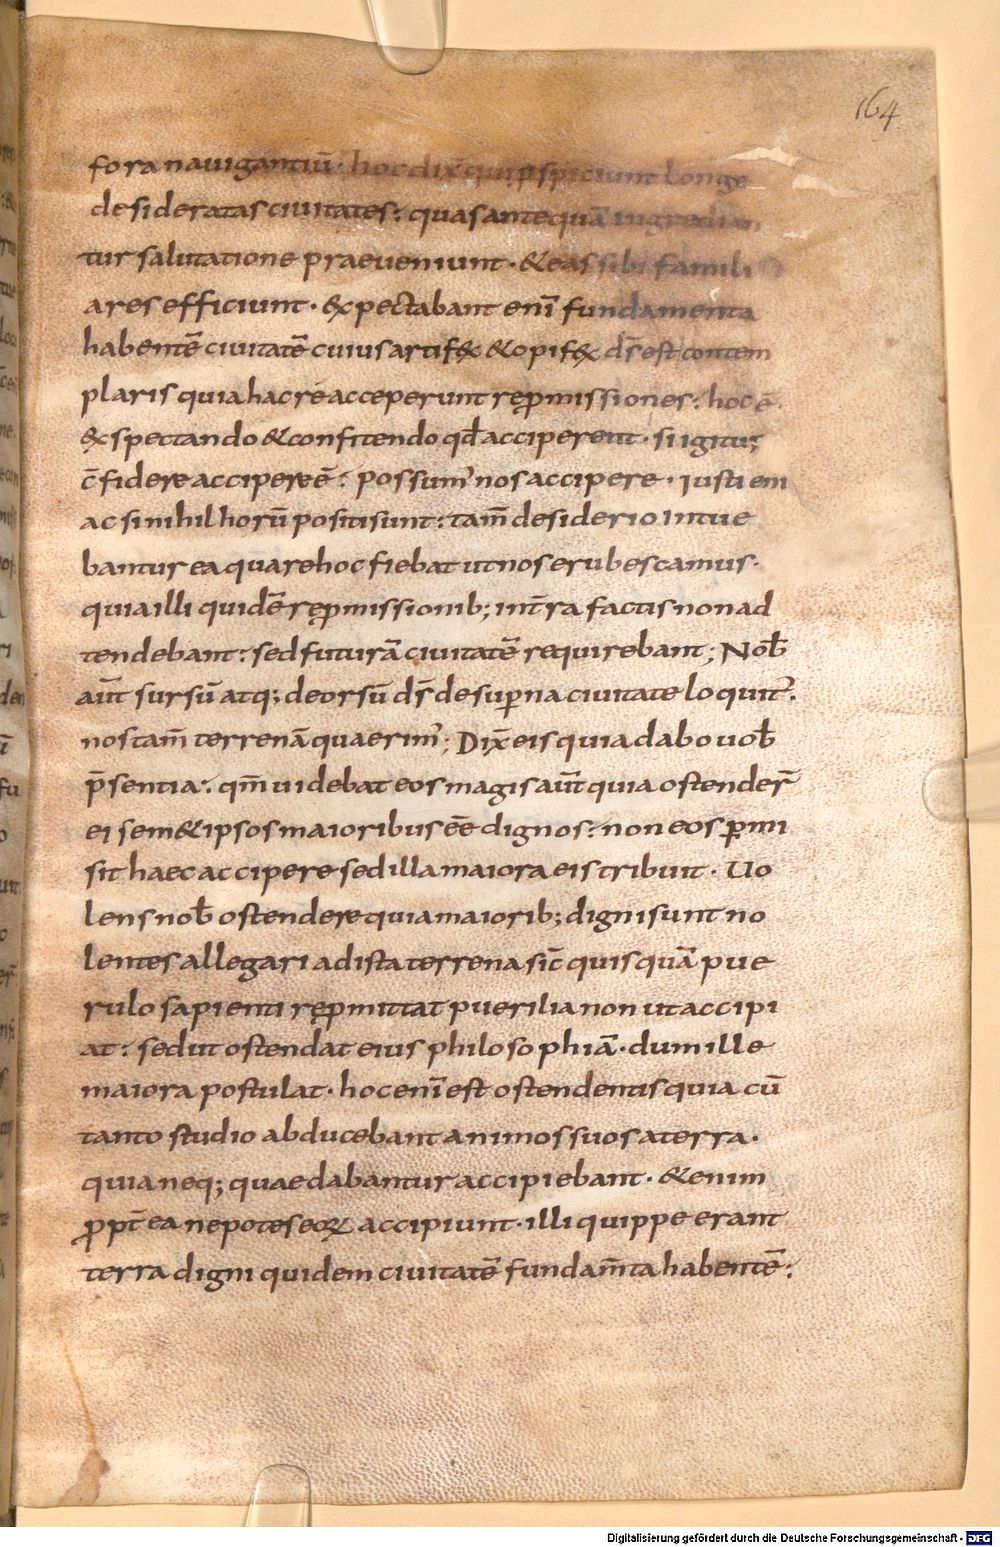 164.
fora nauigantiū· hoc dix̄ qui ꝑspiciunt longe
desideratas ciuitates: quas antequā ingredien
tur salutatione praeueniunt· & eas sibi famili
ares efficiunt· &xpectabant eni᷃ fundamenta
habentē ciuitatē cuius artif&x & opif&x d̄s est contem
plaris quia hac ré acceperunt repmissiones: hoc ē
&xspectando & confitendo qđ acciperent· si igitur
c̄ fidere accipere ē: possum' nos accipere· iusti em
ac si nihil horū positi sunt: tam̄ desiderio intue
bantur ea quare hoc fiebat ut nos erubescamus·
quia illi quidē repmissionib; int̄ra factis non ad
tendebant: sed futurā ciuitatē requirebant; Nob̄
aūt sursū atq; deorsū d̄s de suꝑna ciuitate loquit'·
nos tam̄ terrenā quaerim'; Dix̄ eis quia dabo uob̄
p̄sentia: qm̄ uidebat eos magis aūt quia ostender̄
ei sem&ipsos maioribus eē dignos: non eos ꝑmi
sit haec accipere sed illa maiora eis tribuit· Uo
lens nob̄ ostendere quia maiorib; digni sunt no
lentes allegari ad ista terrena sic̄ quisquā pue
rulo sapienti repmittat puerilia non ut accipi
at: sed ut ostendat eius philosophiā· dum ille
maiora postulat· hoc eni᷃ est ostendentis quia cū
tanto studio abducebant animos suos a terra·
quia neq; quae dabantur accipiebant· &enim
ꝓpt̄ ea nepotes eoꝝ accipiunt· illi quippe erant
terra digni quidem ciuitatē fundam̄ta habentē:
Digitalisierung gefördert durch die Deutsche Forschungsgemeinschaft - DFG